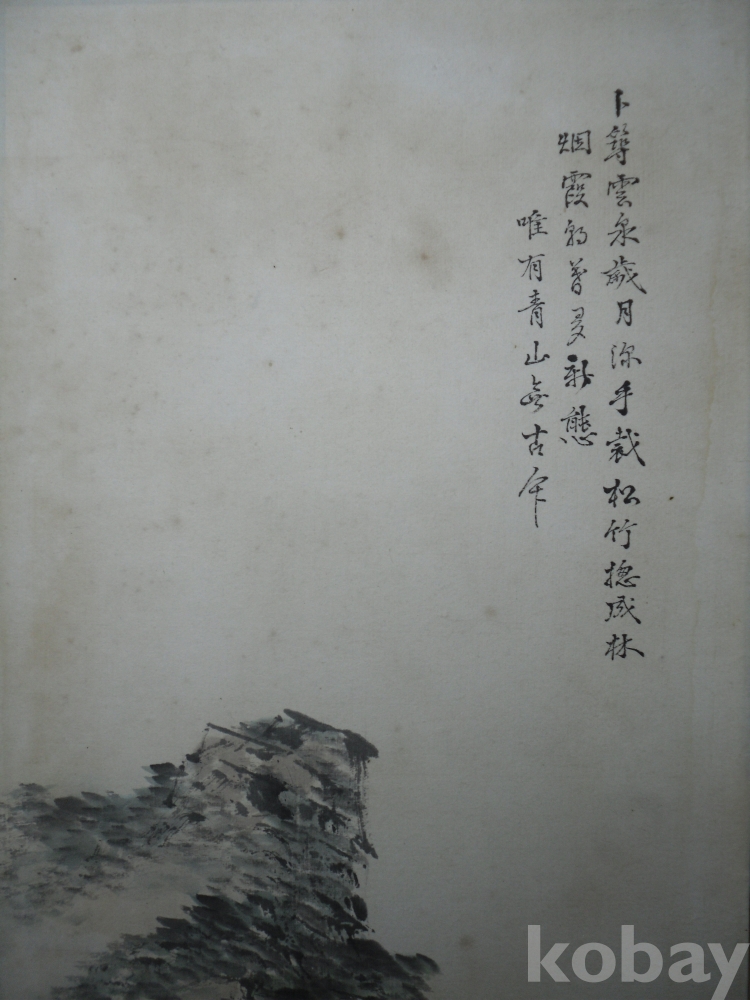 卜築雲泉歲月深手裁松竹捴成林
烟霞朝暮多新態
唯有青山無古今
kobay